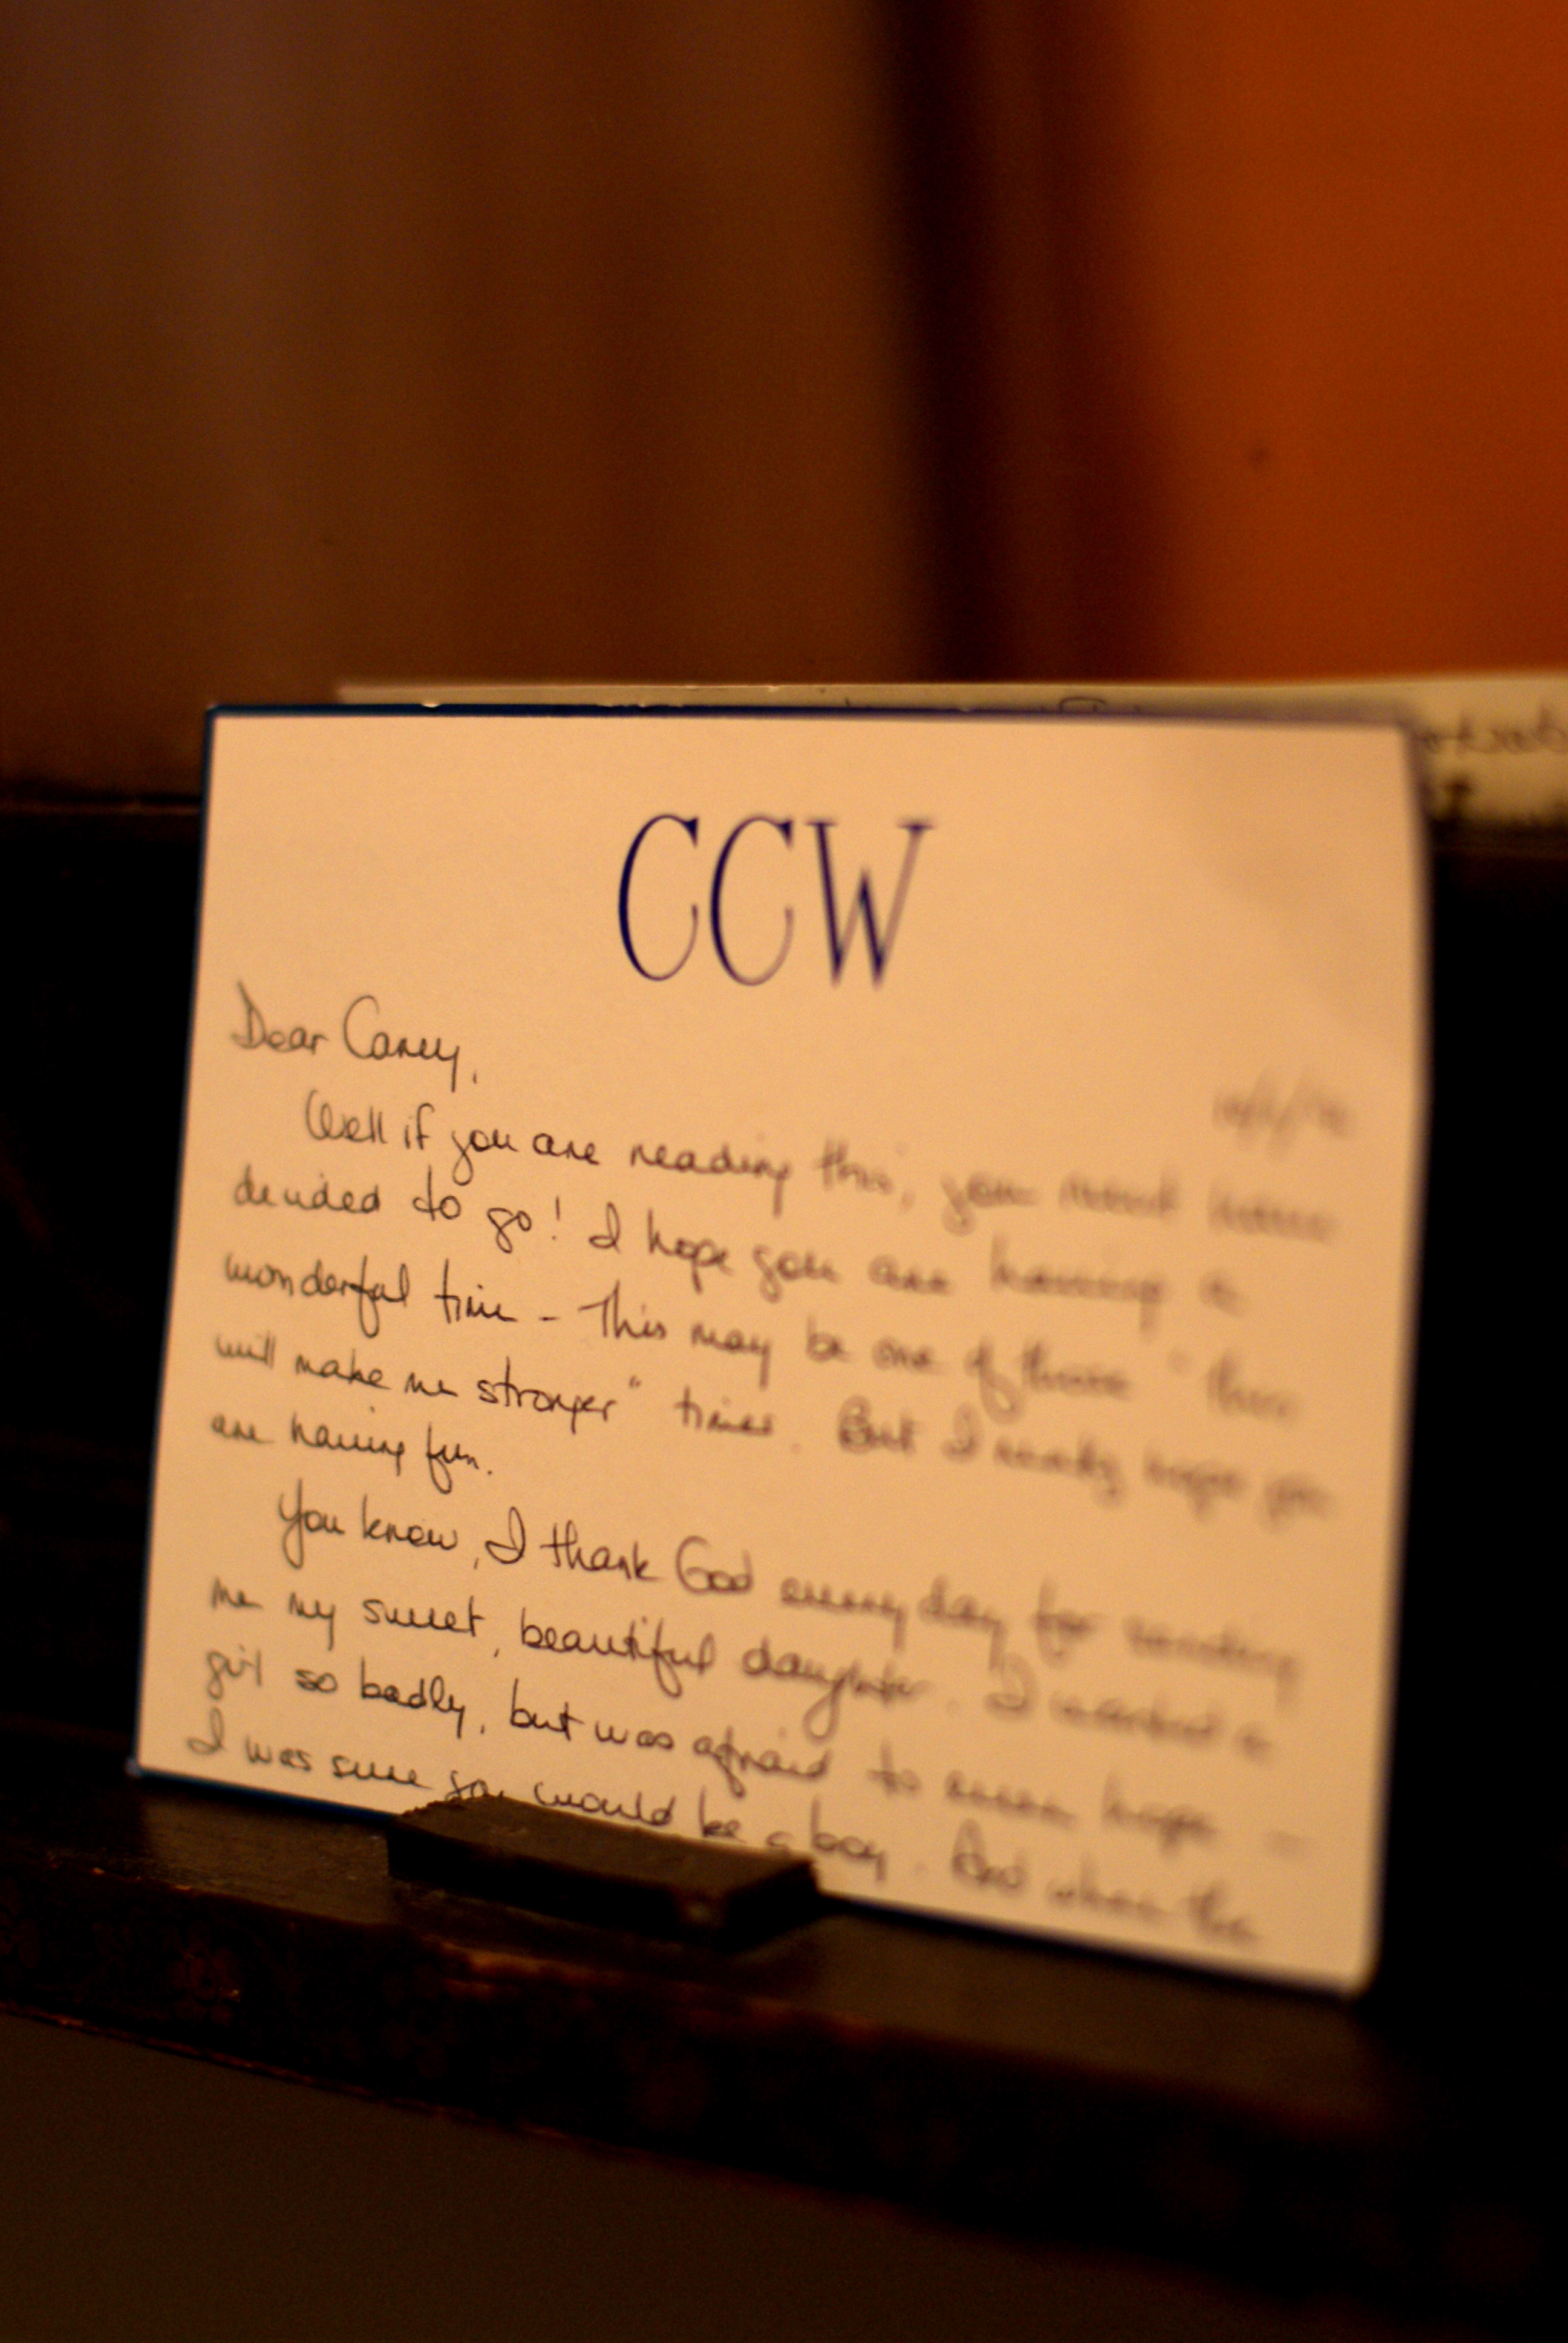 CCW
Dear Carey,
Well if you are reading this, you must have
decided to go! I hope you are having a
wonderful time - This may be one of those "this
will make me stronger" times. But I really hope you
are having fun.
You know, I thank God every day for sending
me my sweet, beautiful daughter. I wanted a
girl so badly, but was afraid to even hope -
I was sure you would be a boy. And when the